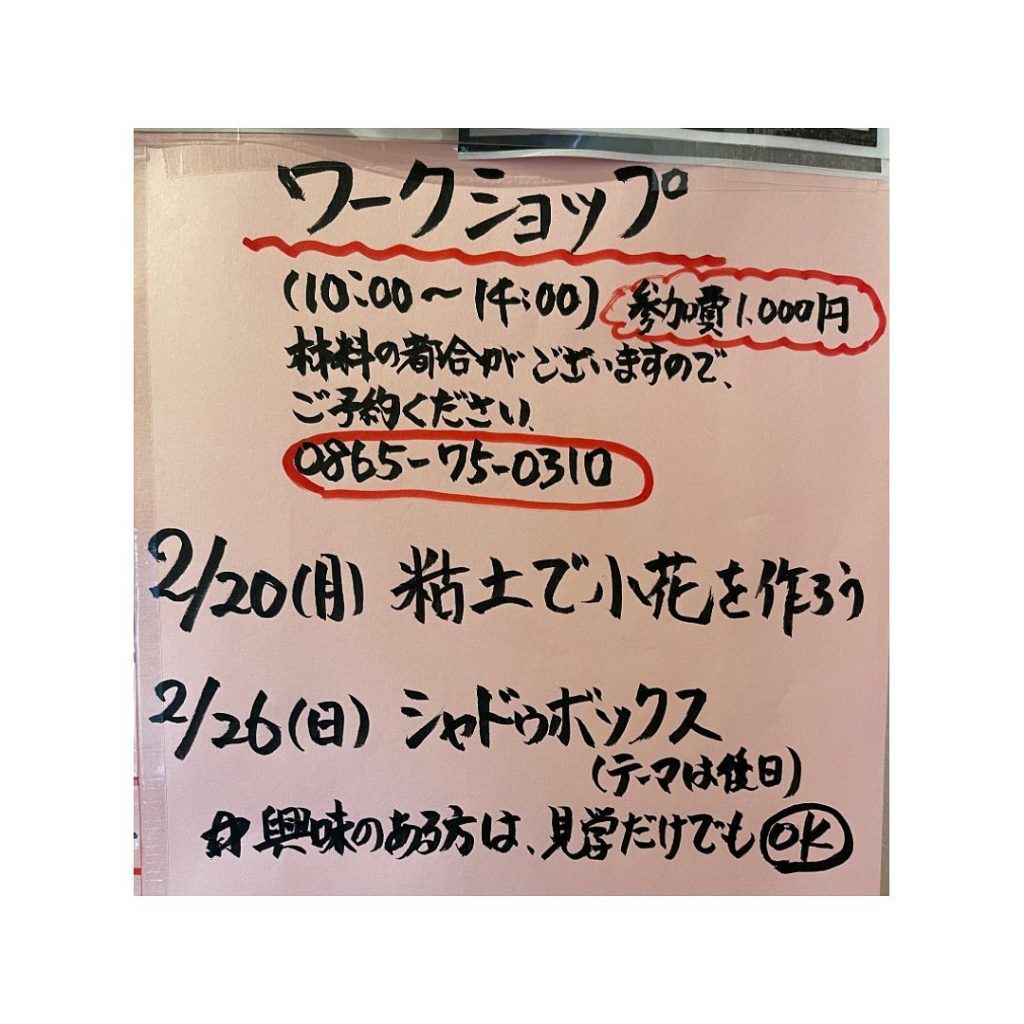 ワークショップ
(10:00〜14:00) 参加費1,000円
材料の都合がございますので、
ご予約ください。
0865-75-0310
2/20(月) 粘土で小花を作ろう
2/26(日) シャドゥボックス
(テーマは後日)
☆興味のある方は、見学だけでもOK